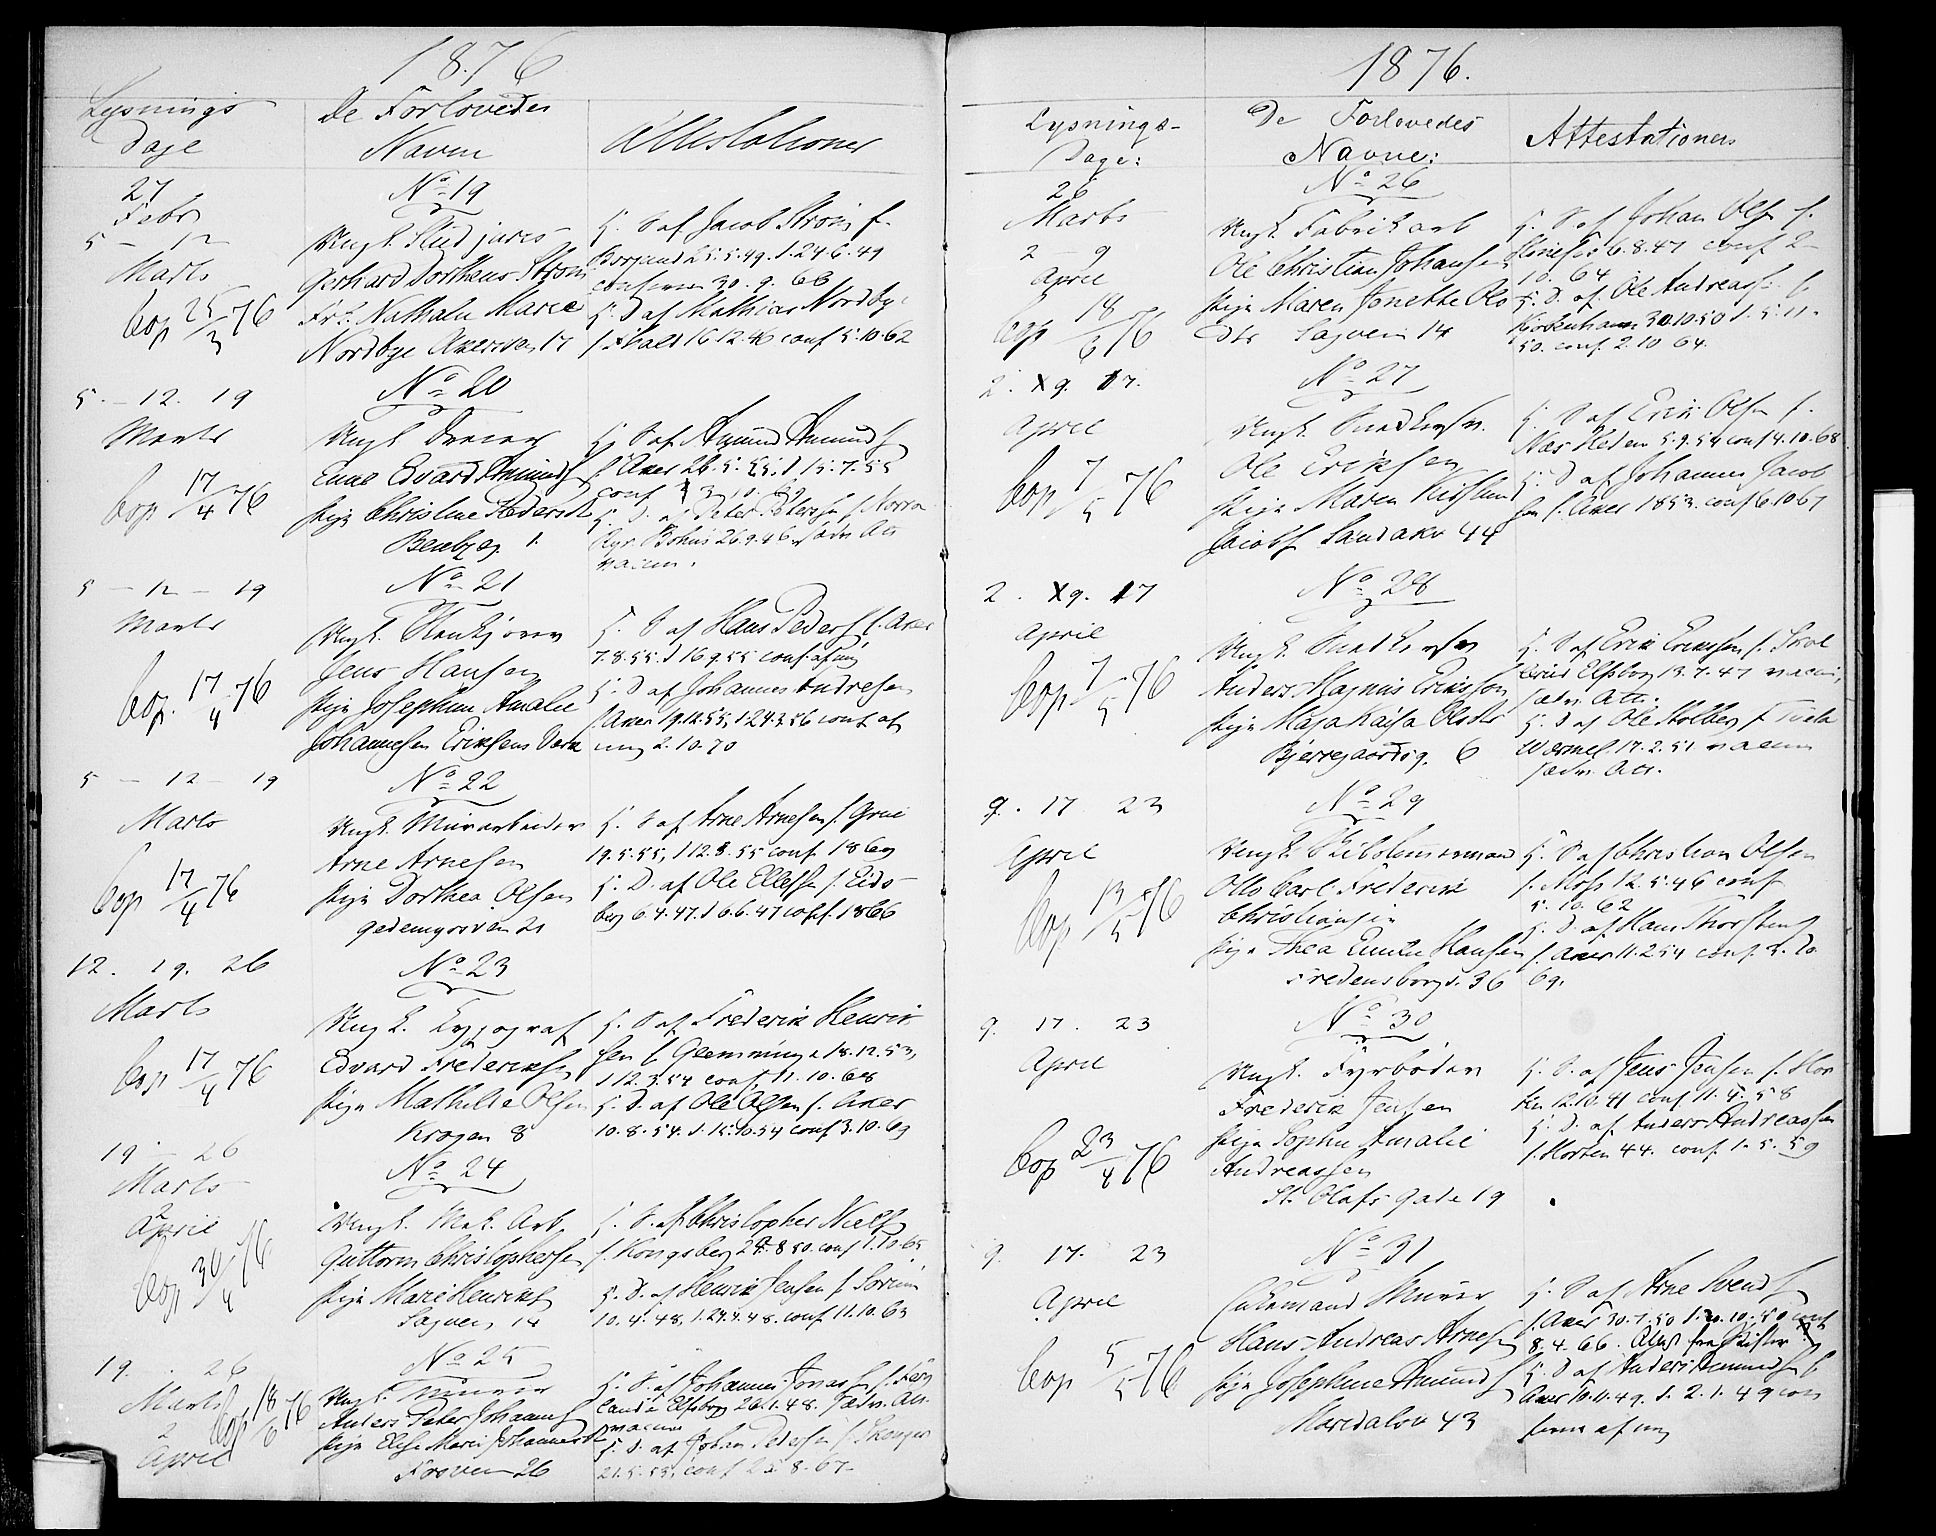 1876
Lysnings
Dage
De Forlovedes
Navne
Attestationer
27
Febr
5 - 12
Marts
Cop 25/3 76
No 19
Ungk. Stud juris
Gerhard Dortheus Strøm
Frk. Nathalie Marie
Nordbye Akersvn 17
E. S. af Jacob Strøm f.
Borgund 25.5.49. d. 24.6.49
confirm 30. 9. 66
E. D af Mathias Nordbye
f. Hald 16.12.46 conf 5.10.62
5. - 12. 19
Marts
Cop 17/4 76
No 20
Ungk
Edvard Amunds
Pige Christine Peders
1.
E. S af Amund Amunds
f. Aker 26.5.55. d 15.7.55
conf 3 10. 69
E. D. af Peter Peters f Norra
Bohus 26.9.46 Att
vaccin.
5 - 12 - 19
Marts
Cop. 17/4 76
No 21
Ungk.
Jens Hansen
Pige Josephine Amalie
Johannesen Eriksens Værk
E. S af Hans Peders f. Aker
7.8.55. d 16 9.55 conf. af mig
E. D af Johannes Andresen
f Aker 19.12.55, d. 24.3.56 conf af
mig 2. 10. 70
5 - 12 - 19
Marts
Cop 17/4 76
No 22
Ungk. Murarbeider
Arne Arnesen
Pige Dorthea Olsen
21
E. S af Arne Arnesen f. Grue
19.5.55, d 12.8.55 conf. 1869
E. D. af Ole Ellefsen f. Eids-
berg 6.4.47. d 6.6.47 conf. 1866
12. 19. 26
Marts
Cop 17/4 76
No 23
Ungk. Typograf
Edvard Frederiks
Pige Mathilde Olsen
Krogen 8
E. S af Frederik Henrik
sen f. Glemminge 18.12.53,
d 12.3.54 conf. 11. 10. 68
E. D. af Ole Olsen f. Aker
10. 8. 54. d. 15.10.54 conf 3.10.69
19 - 26
Marts
2
April
Cop 30/4 76
No 24
Ungk. Mek. Arb.
Guttorm Christophersen
Pige Marie Henriks
Sagven 14
E. S. af Christopher Niels
f. Kongsberg 24. 8 50. conf 1.10.65
E. D. af Henrik Jensen f Sørum
10. 4. 48, d. 24.4.48. conf. 11.10.63
19. 26
Marts
2
April
Cop 18/6 76
No 25
Ungk. Murer
Anders Peter Johanns
Pige Elise Marie Johannesd
Fosven 26
E. S. af Johannes Jonas f Fær
Elfsborg 26.1.48. Att
vaccin
E. D. af Johan Pedersen f. Skoger
21. 5. 55, conf 25. 8. 67
1876.
Lysnings-
Dage:
De Forlovedes
Navne:
Attestationer
26
Marts
2 - 9
April
Cop 18/6 76
No 26
Ungk. Fabrikarb
Ole Christian Johansen
Pige Maren Jonette Ols
Dtr Sagvein 14
E. S af Johan Olsen f.
6. 8. 47 conf 2
10. 64
E. D. af. Ole Andreass f.
Kiøbenhavn 30.10.50 d. 5. 11.
50. conf. 2. 10 64.
2. 9. 17.
April
Cop 7/5 76
No 27
Ungk.
Ole Eriksen
Pige Maren
Jacobs Sandaker 44
E. S af Erik Olsen f.
5.9.54 conf 4.10.68
E. D af Johannes Jacob
sen f. Aker 1853. conf 6.10 67
2. 9. 17
April
Cop 7/5 76
No 28
Ungk.
Anders Magnus Eriksson
Pige Maja Kaisa Olsdtr
Bjerregaardsg. 6
E. S af Erik Eriksson f.
Elfsborg 13.7.47 vaccin,
Att.
E. D af Ole f. Tveta
Wermel. 17. 2. 51 vaccin
Att.
9. 17 23
April
Cop 13/5 76
No 29
Ungk. Skibstømmermand
Carl Frederik
Christiansen
Pige Thea Emilie Hansen
Fredensborgv. 36
E. S af Christian Olsen
f. Moss 12. 5. 46 conf
5. 10. 62
E. D. af Hans Thorstens
f. Aker 11.2 54 conf. 3. 10
69.
9. 17. 23
April
Cop 23/4 76
No 30
Ungk. Fyrbøder
Frederik Jensen
Pige Sophie Amalie
Andreassen
St. Olafs Gade 19
E. S. af Jens Jensen f. Hor
ten 12.10. 41 conf 11. 4. 58
E. D. af Anders Andreassen
f. Horten 44. conf. 1. 5. 59
9. 17. 23
April
Cop 5/5 76
No 31
Enkemand Murer
Hans Andreas Arnesen
Pige Josephine Amunds
Maridalsv 43
E. S af Arne Svends
f. Aker 30.7.50 d. 20.10.50 conf
8. 4. 66. Attest fra Skifter
E. D af Anders Amunds f.
Aker 10.11.49. d. 2. 1. 49 con
firm af mig